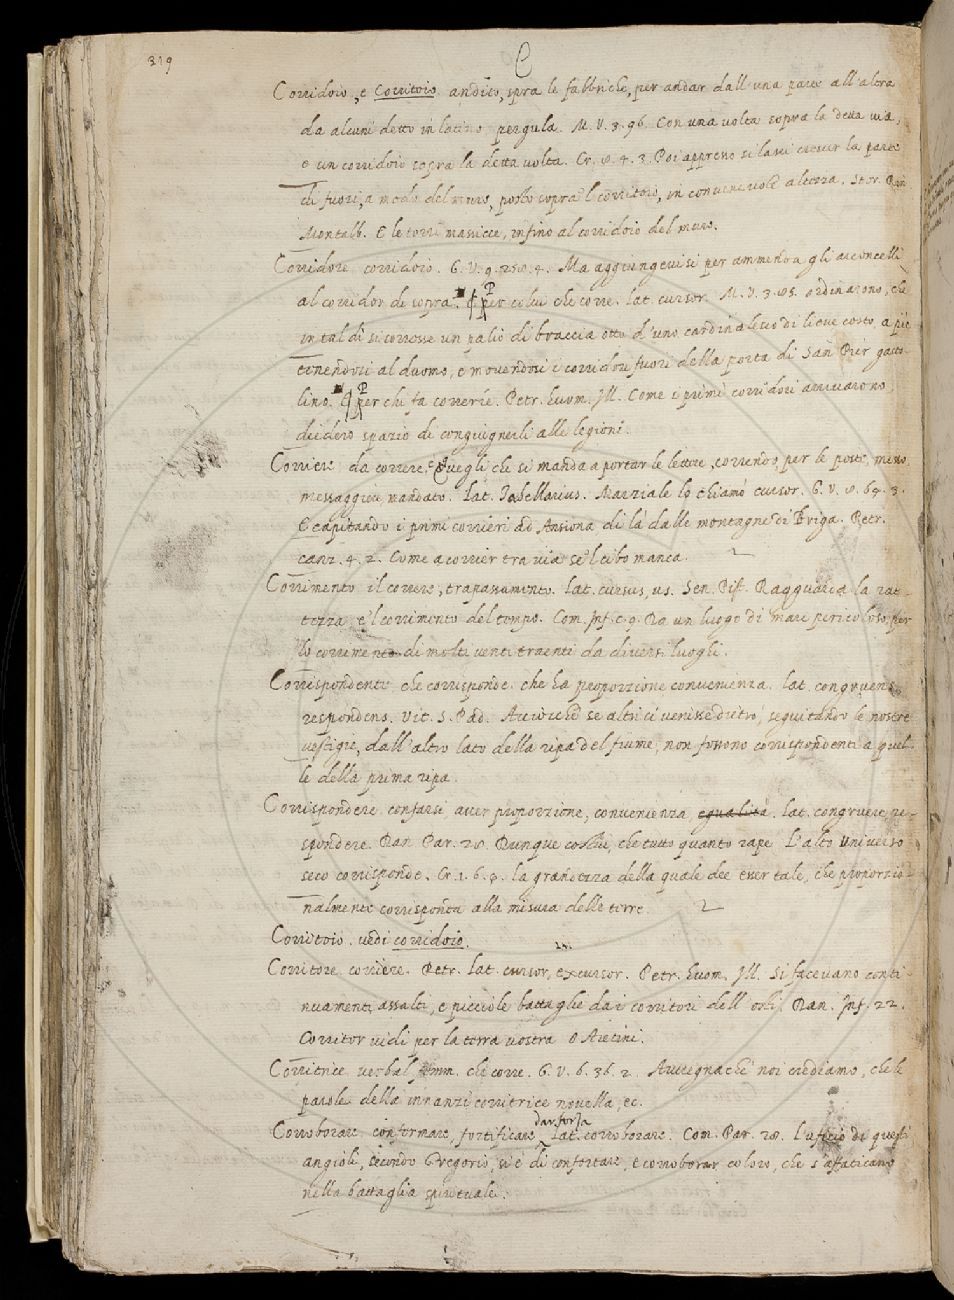 319
C
Corridoio, e Corritoio. andito, sopra le fabbriche, per andar dall'una parte all'altra
da alcuni detto in latino pergula. M. V. 3. 96. Con una volta sopra la detta via,
e un corridoio sopra la detta volta. Cr. 8. 4. 3. Poi appresso si lasci crescer la parte
di fuori, a modo del muro, posto sopra'l corritoio, in convenevole altezza. Stor. Rin.
Montalb. E le torri massicce, infino al corridoio del muro.
Corridore corridoio. G. V. 9. 258. 4. Ma aggiungevisi per ammenda gli arconcelli
al corridor di sopra. ¶ per colui che corre. lat. cursor. M. V. 3. 85. ordinarono, che
in tal dì si corresse un palio di braccia otto d'uno cardinalesco di lieve costo, a piè
tenendosi al duomo, e movendosi i corridori fuori della porta di San Pier gatto-
lino. ¶ per chi fa correrie. Petr. huom. Ill. Come i primi corridori arrivarono,
diedero spazio di congiugnersi alle legioni.
Corriere da correre, e Quegli che si manda a portar le lettere, correndo, per le poste, messo,
messaggiere, mandato. Lat. Tabellarius. Marziale lo chiamò cursor. G. V. 8. 64. 3.
E capitando i primi corrieri ad Ansiona di là dalle montagne di Briga. Petr.
canz. 4. 2. Come a corrier tra via se'l cibo manca.
Corrimento il correre, trapassamento. lat. cursus, us. Sen. Pist. Ragguarda la rat-
tezza, e'l corrimento del tempo. Com. Inf. c. 9. Da un luogo di mare pericoloso, per
lo corrimento di molti venti traenti da diversi luoghi.
Corrispondente che corrisponde. che ha proporzione convenienza. lat. congruens
respondens. Vit. S. Pad. Acciocchè se altri ci venisse dietro, seguitando le nostre
vestigie, dall'altro lato della ripa del fiume, non fossono corrispondenti a quel-
le della prima ripa.
Corrispondere confarsi aver proporzione, convenienza egualità. lat. congruere, re-
spondere. Dan Par. 28. Dunque costui, che tutto quanto rape L'alto Universo
seco corrisponde. Cr. 1. 6. 9. la grandezza della quale dee esser tale, che proporzio-
nalmente corrisponda alla misura delle terre.
Corritoio. vedi corridoio.
Corritore corriere. Petr. lat. cursor, excursor. Petr. huom. Ill. Si facevano conti-
nuamenti assalti, e picciole battaglie da i corritori dell'osti. Dan. Inf. 22.
Corritor vidi per la terra vostra O Aretini.
Corritrice verbal femm. che corre. G. V. 6. 36. 2. Avvegnachè noi crediamo, che le
parole della innanzi corritrice novella, ec.
dar forza
Corroborare confermare, fortificare lat. corroborare. Com. Par. 28. L'uficio di questi
angioli, secondo Gregorio, si è di confortare, e corroborar coloro, che s'affaticano
nella battaglia spirituale.